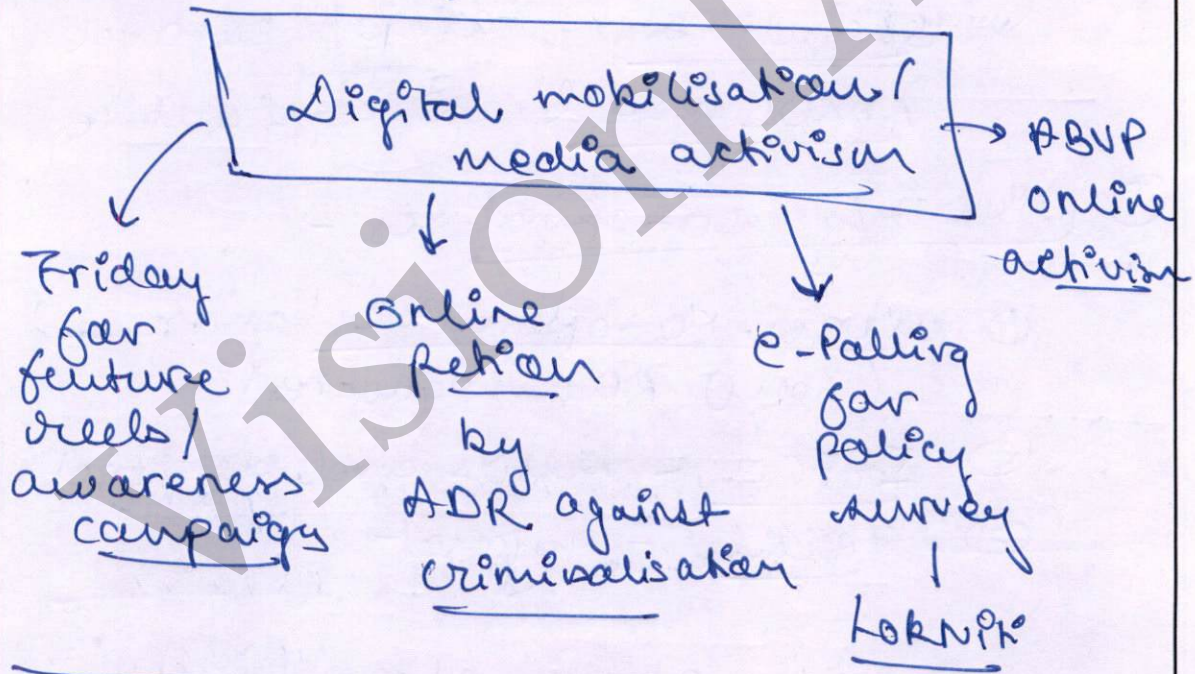 Digital mobilisation /
media activism
→ ABVP
online
activism
Friday
for
feuture
reels /
awareness
campaign
online
petion
by
ADR against
criminalisation
e-Polling
for
policy
survey
|
LOKNiti
VisionIA